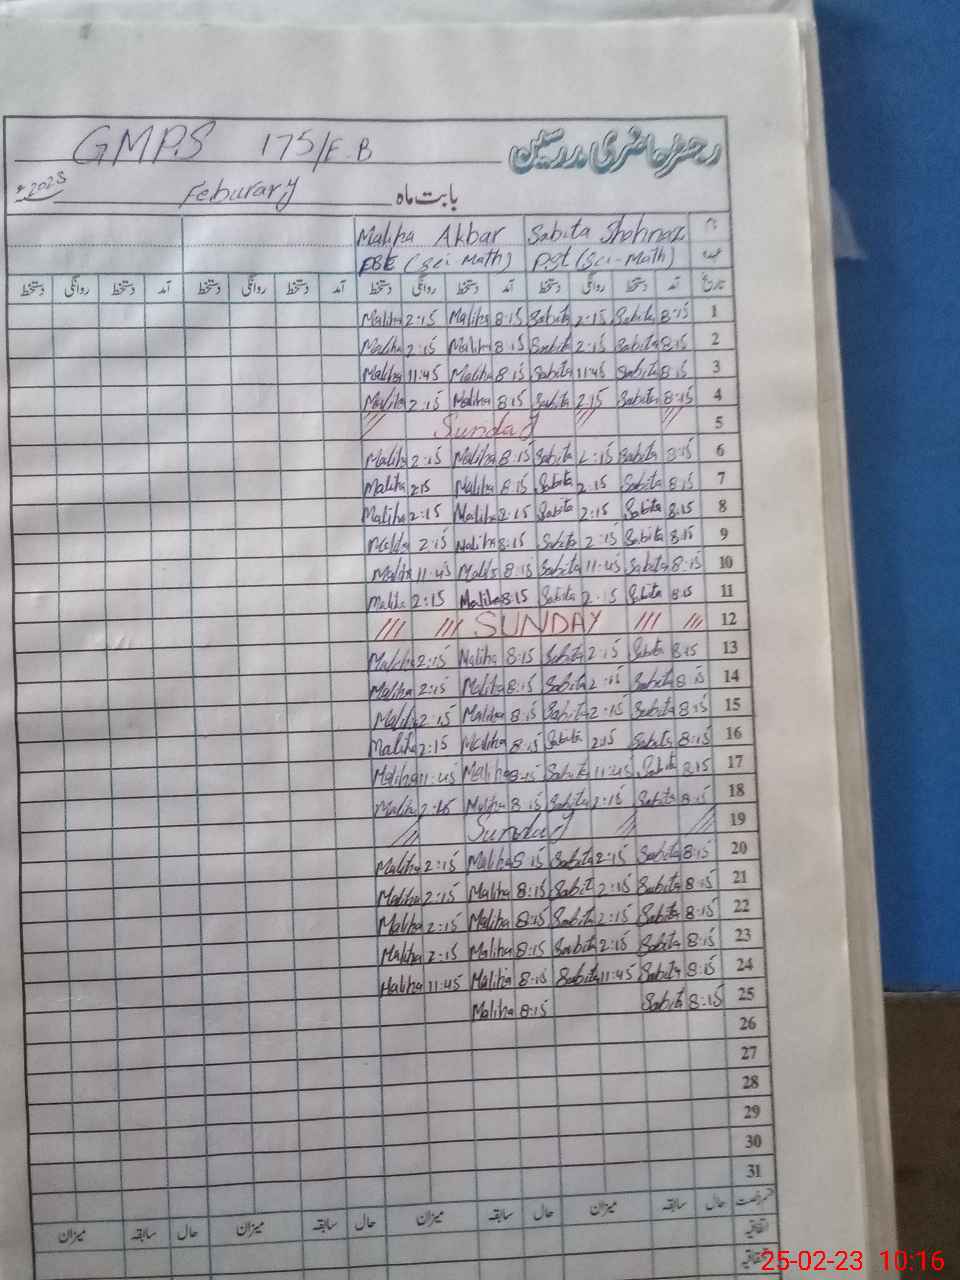 GMP.S 175/E.B رجسٹر حاضری مدرسین
2023 Feburary بابت ماہ
Maliha Akbar Sabita Shahnaz نام
ESE (Sci-Math) P.st (Sci-Math) عہدہ
دستخط روانگی دستخط آمد دستخط روانگی دستخط آمد دستخط روانگی دستخط آمد دستخط روانگی دستخط آمد تاریخ
Maliha 2:15 Maliha 8:15 Sabita 2:15 Sabita 8:15 1
Maliha 2:15 Maliha 8:15 Sabita 2:15 Sabita 8:15 2
Maliha 11:45 Maliha 8:15 Sabita 11:45 Sabita 8:15 3
Maliha 2:15 Maliha 8:15 Sabita 2:15 Sabita 8:15 4
/// Sunday /// /// 5
Maliha 2:15 Maliha 8:15 Sabita 2:15 Sabita 8:15 6
Maliha 2:15 Maliha 8:15 Sabita 2:15 Sabita 8:15 7
Maliha 2:15 Maliha 2:15 Sabita 2:15 Sabita 8:15 8
Maliha 2:15 Maliha 8:15 Sabita 2:15 Sabita 8:15 9
Maliha 11:45 Maliha 8:15 Sabita 11:45 Sabita 8:15 10
Maliha 2:15 Maliha 8:15 Sabita 2:15 Sabita 8:15 11
/// /// SUNDAY /// /// 12
Maliha 2:15 Maliha 8:15 Sabita 2:15 Sabita 8:15 13
Maliha 2:15 Maliha 8:15 Sabita 2:15 Sabita 8:15 14
Maliha 2:15 Maliha 8:15 Sabita 2:15 Sabita 8:15 15
Maliha 2:15 Maliha 8:15 Sabita 2:15 Sabita 8:15 16
Maliha 11:45 Maliha 8:15 Sabita 11:45 Sabita 8:15 17
Maliha 2:15 Maliha 8:15 Sabita 2:15 Sabita 8:15 18
/// Sunday /// /// 19
Maliha 2:15 Maliha 8:15 Sabita 2:15 Sabita 8:15 20
Maliha 2:15 Maliha 8:15 Sabita 2:15 Sabita 8:15 21
Maliha 2:15 Maliha 8:15 Sabita 2:15 Sabita 8:15 22
Maliha 2:15 Maliha 8:15 Sabita 2:15 Sabita 8:15 23
Maliha 11:45 Maliha 8:15 Sabita 11:45 Sabita 8:15 24
Maliha 8:15 Sabita 8:15 25
26
27
28
29
30
31
میزان سابقہ حال میزان سابقہ حال میزان سابقہ حال میزان سابقہ حال قسم رخصت
اتفاقیہ
25-02-23 10:16